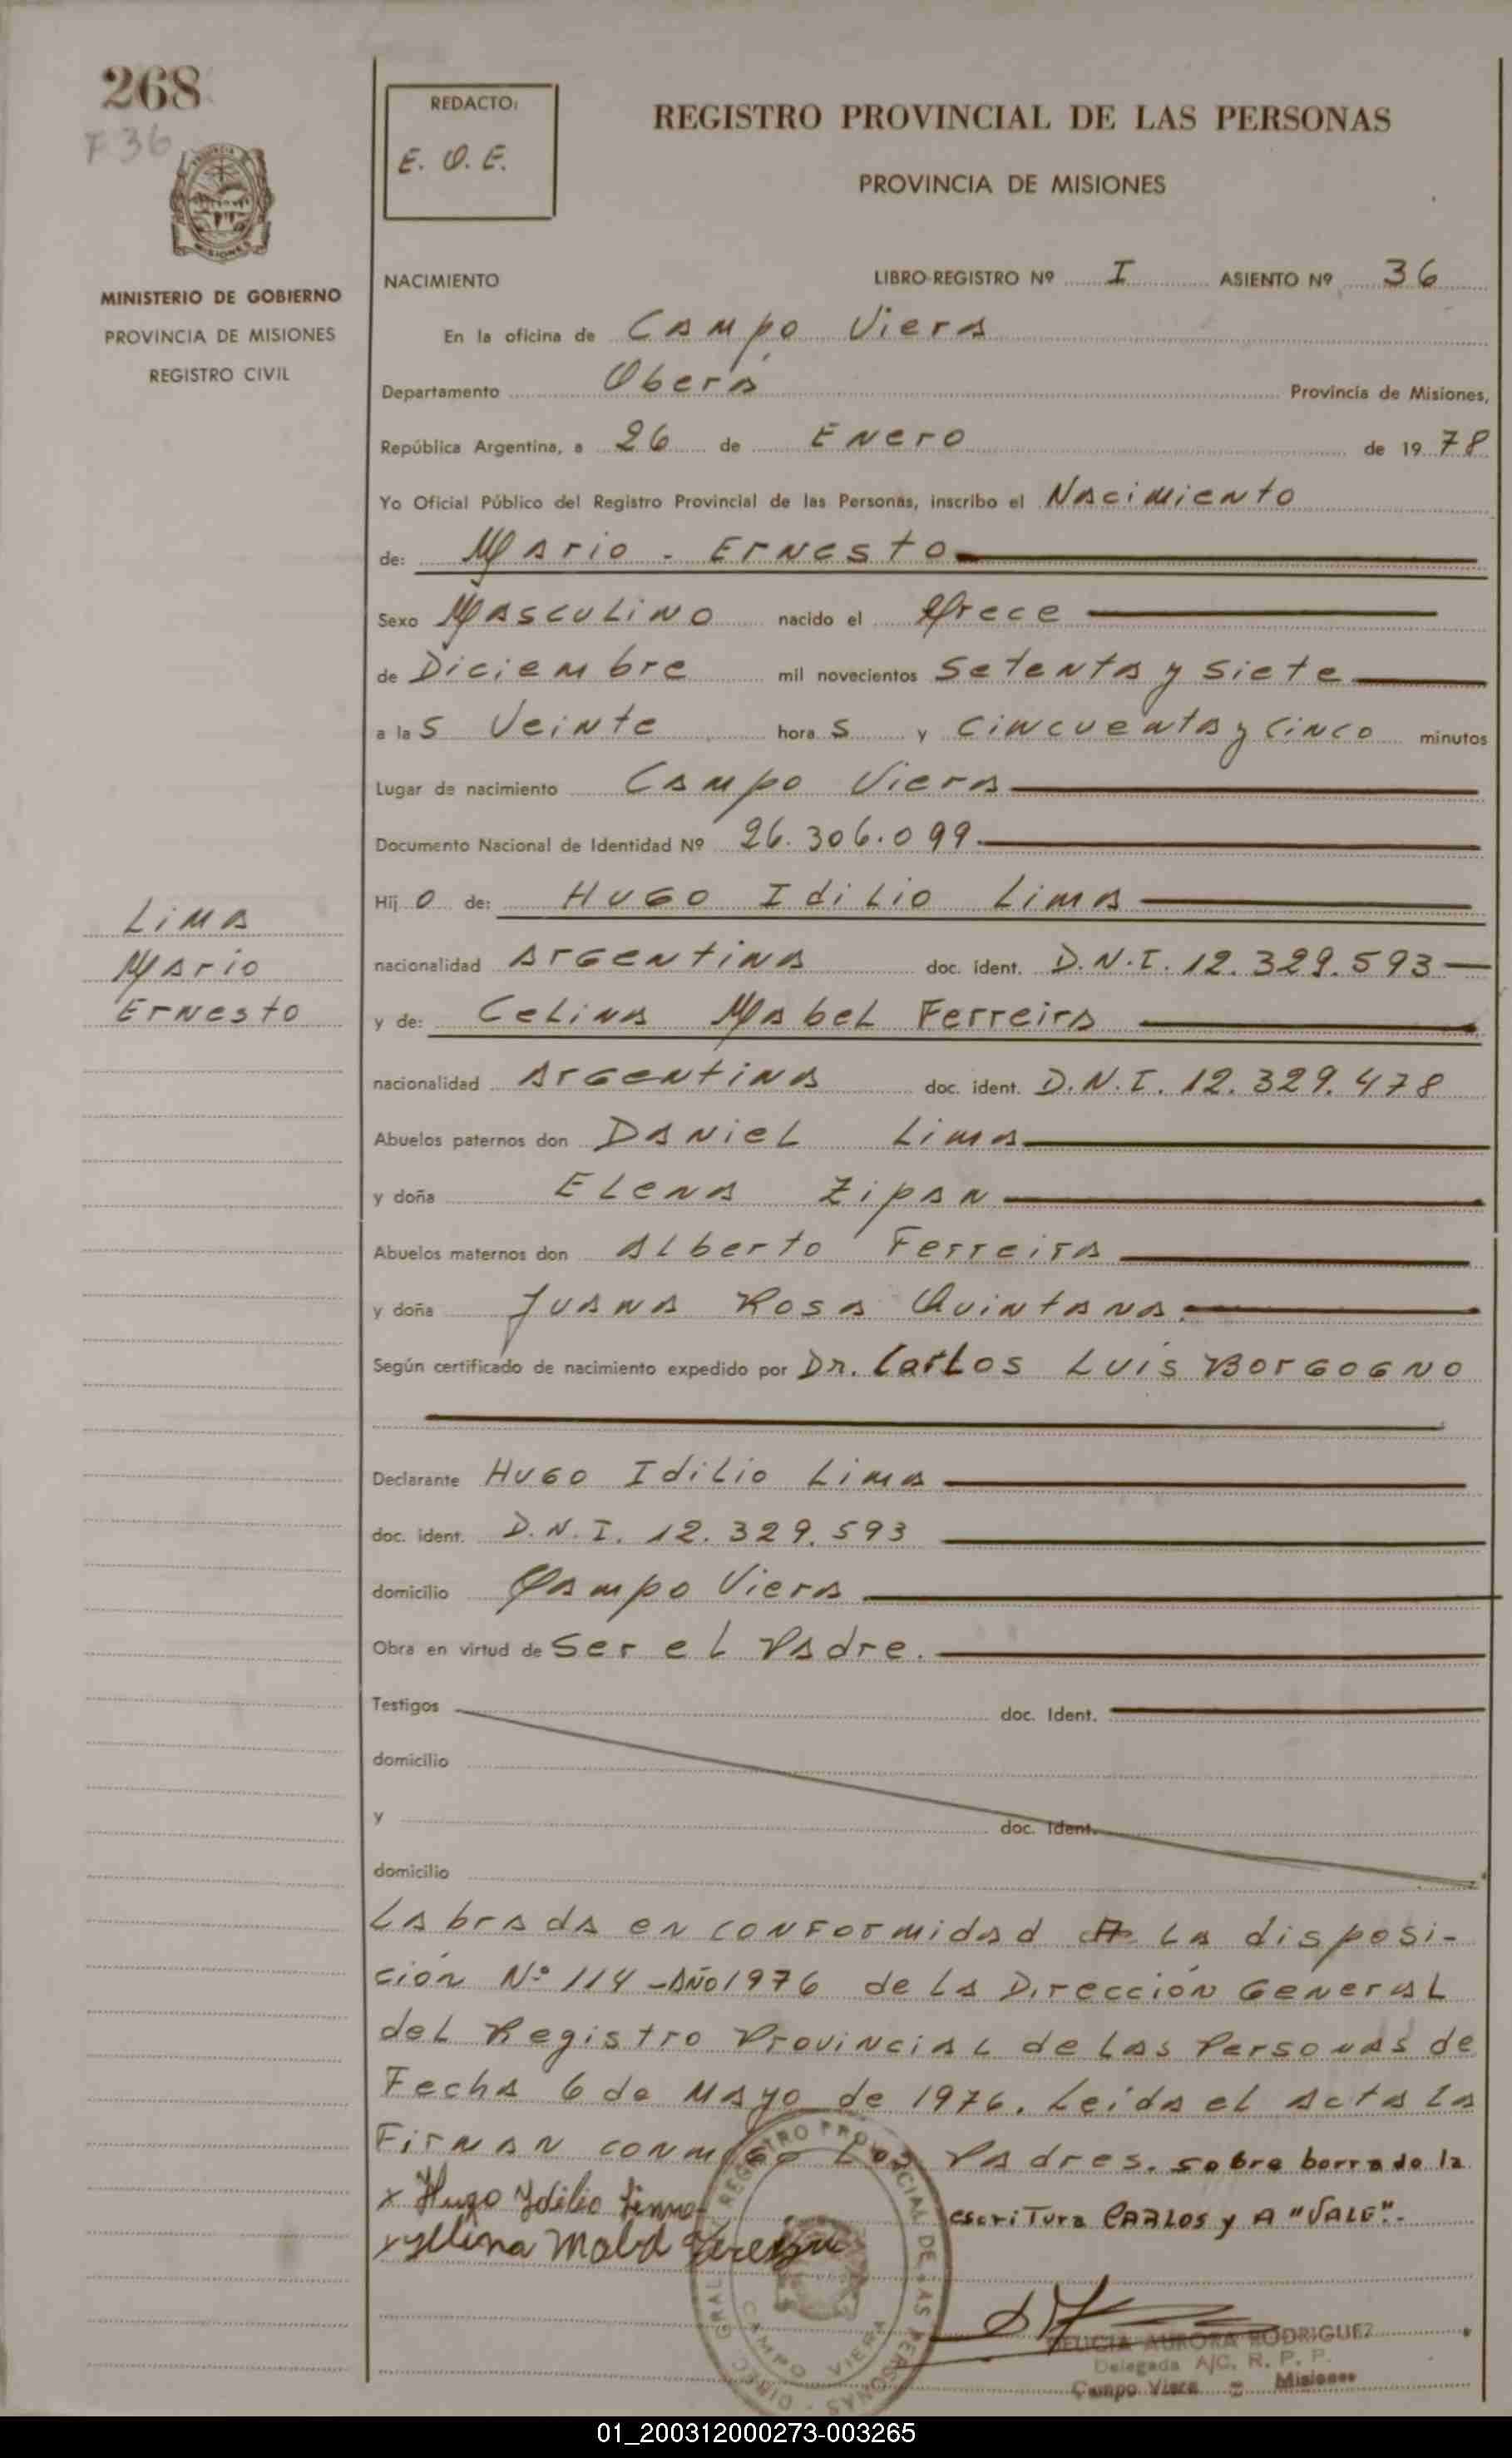 268
F 36
PROVINCIA DE
MISIONES
MINISTERIO DE GOBIERNO
PROVINCIA DE MISIONES
REGISTRO CIVIL
REDACTO:
E. O. E.
REGISTRO PROVINCIAL DE LAS PERSONAS
PROVINCIA DE MISIONES
NACIMIENTO LIBRO-REGISTRO Nº I ASIENTO Nº 36
En la oficina de Campo Viera
Departamento Oberá Provincia de Misiones,
República Argentina, a 26 de Enero de 1978
Yo Oficial Público del Registro Provincial de las Personas, inscribo el Nacimiento
de: Mario - Ernesto
Sexo Masculino nacido el Trece
de Diciembre mil novecientos Setenta y siete
a las Veinte horas y Cincuenta y Cinco minutos
Lugar de nacimiento Campo Viera
Documento Nacional de Identidad Nº 26.306.099.
Hijo de: Hugo Idilio Lima
nacionalidad Argentina doc. ident. D.N.I. 12.329.593
y de: Celina Mabel Ferreira
nacionalidad Argentina doc. ident. D.N.I. 12.329.478
Abuelos paternos don Daniel Lima
y doña Elena Zipan
Abuelos maternos don Alberto Ferreira
y doña Juana Rosa Quintana.
Según certificado de nacimiento expedido por Dr. Carlos Luis Borgogno
Lima
Mario
Ernesto
Declarante Hugo Idilio Lima
doc. ident. D.N.I. 12.329.593
domicilio Campo Viera
Obra en virtud de Ser el Padre.
Testigos doc. Ident.
domicilio
y doc. Ident.
domicilio
Labrada en conformidad A la disposi-
ción Nº 114 - Año 1976 de la Dirección General
del Registro Provincial de las Personas de
Fecha 6 de Mayo de 1976. Leida el acta la
Firman conmigo Los Padres. sobre borrado la
escritura CARLOS y A "VALE".-
x Hugo Idilio Lima
x Celina Mabel Ferreira
DIREC. GRAL. REGISTRO PROVINCIAL DE LAS PERSONAS
CAMPO VIERA
DELICIA AURORA RODRIGUEZ
Delegada A/C. R. P. P.
Campo Viera = Misiones
01_200312000273-003265